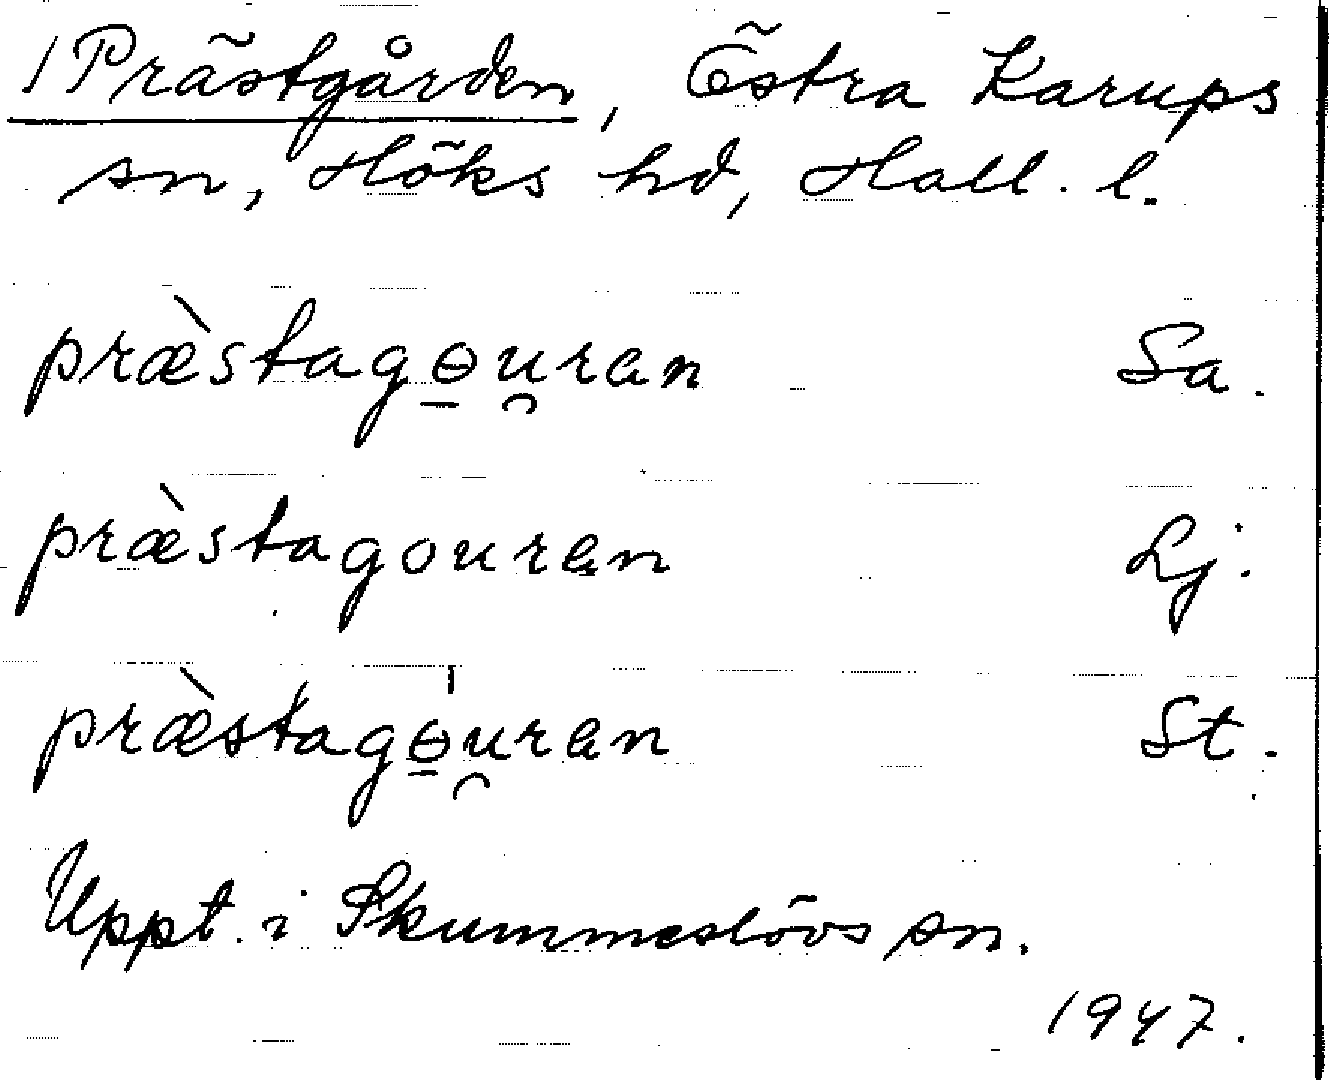 / Prästgården, Östra Karups
sn, Höks hd, Hall. l.
præ̀stagɵ̱u̯ran Sa.
præ̀stagouran Lj.
præ̀stagɵ̱̍u̯ran St.
Uppt. i Skummeslövs sn.
1947.